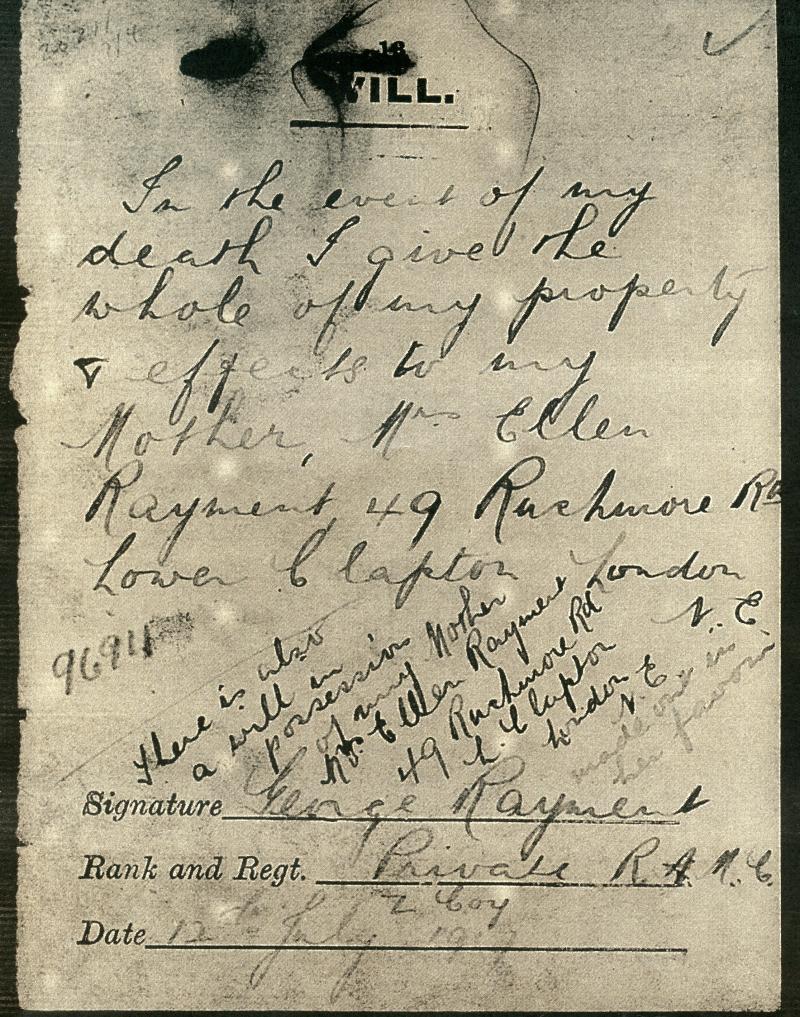 18
WILL.
In the event of my
death I give the
whole of my property
& effects to my
Mother, Mrs Ellen
Rayment, 49 Rushmore Rd
Lower Clapton London
N. E.
9694
There is also
a will in
possession
of my Mother
Mrs. Ellen Rayment
49 Rushmore Rd
L. Clapton
London
N. E.
made out in
her favour
Signature George Rayment
Rank and Regt. Private R.A.M.C.
2 Coy
Date 12th July 1917